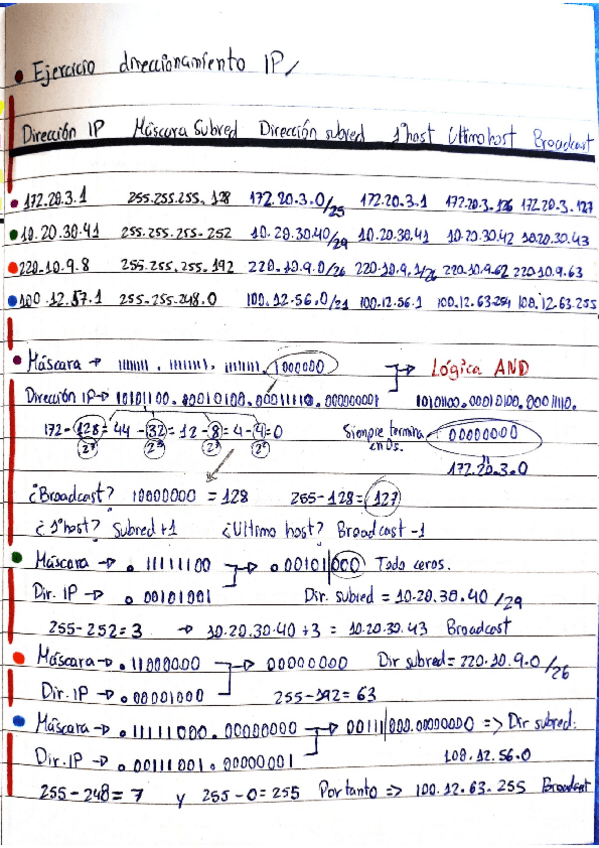 Ejercicio direccionamiento IP/
Dirección IP Máscara Subred Dirección subred 1ºhost Último host Broadcast
172.20.3.1 255.255.255.128 172.20.3.0/25 172.20.3.1 172.20.3.126 172.20.3.127
10.20.30.41 255.255.255.252 10.20.30.40/29 10.20.30.41 10.20.30.42 10.20.30.43
220.10.9.8 255.255.255.192 220.10.9.0/26 220.10.9.1/26 220.10.9.62 220.10.9.63
100.12.57.1 255.255.248.0 100.12.56.0/21 100.12.56.1 100.12.63.254 100.12.63.255
Máscara → 1000000 → Lógica AND
Dirección IP→ 10101100.00010100.00011110.00000001 10101100.00010100.00011110.
172-128=44-32=12-8=4-4=0 Siempre termina en 0s. 00000000
2⁷ 2⁵ 2³ 2² 172.20.3.0
¿Broadcast? 10000000 = 128 255-128=127
¿1ºhost? Subred+1 ¿Ultimo host? Broadcast-1
Máscara → .11111100 → .00101|000 Todo ceros.
Dir. IP → .00101001 Dir. subred = 10.20.30.40/29
255-252=3 → 10.20.30.40+3 = 10.20.30.43 Broadcast
Máscara→ .11000000 → 00000000 Dir subred= 220.10.9.0/26
Dir. IP → .00001000 255-192=63
Máscara→ .11111000.00000000 → 00111|000.00000000 => Dir subred:
Dir. IP → .00111001.00000001 100.12.56.0
255-248=7 y 255-0=255 Por tanto => 100.12.63.255 Broadcast